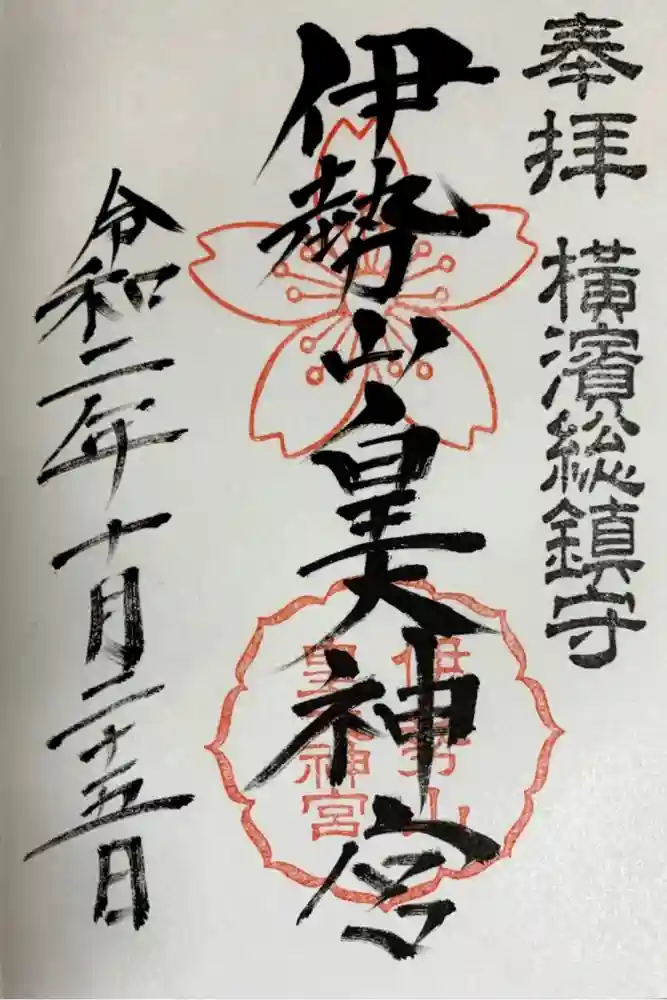 奉拝 横濱総鎮守
伊勢山皇大神宮
伊勢山
皇大神宮
令和二年十月二十五日